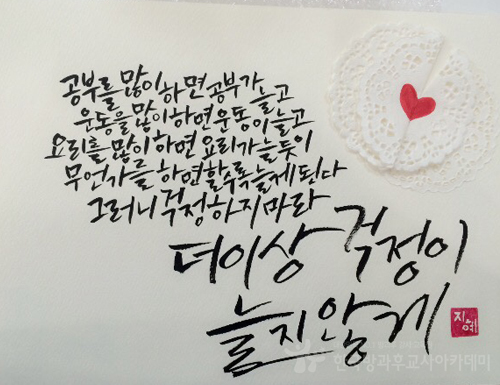 공부를 많이하면 공부가 늘고
운동을 많이하면 운동이 늘고
요리를 많이하면 요리가 늘듯이
무언가를 하면 할수록 늘게된다
그러니 걱정하지마라
더이상 걱정이
늘지않게
지혜
한국방과후교사아카데미